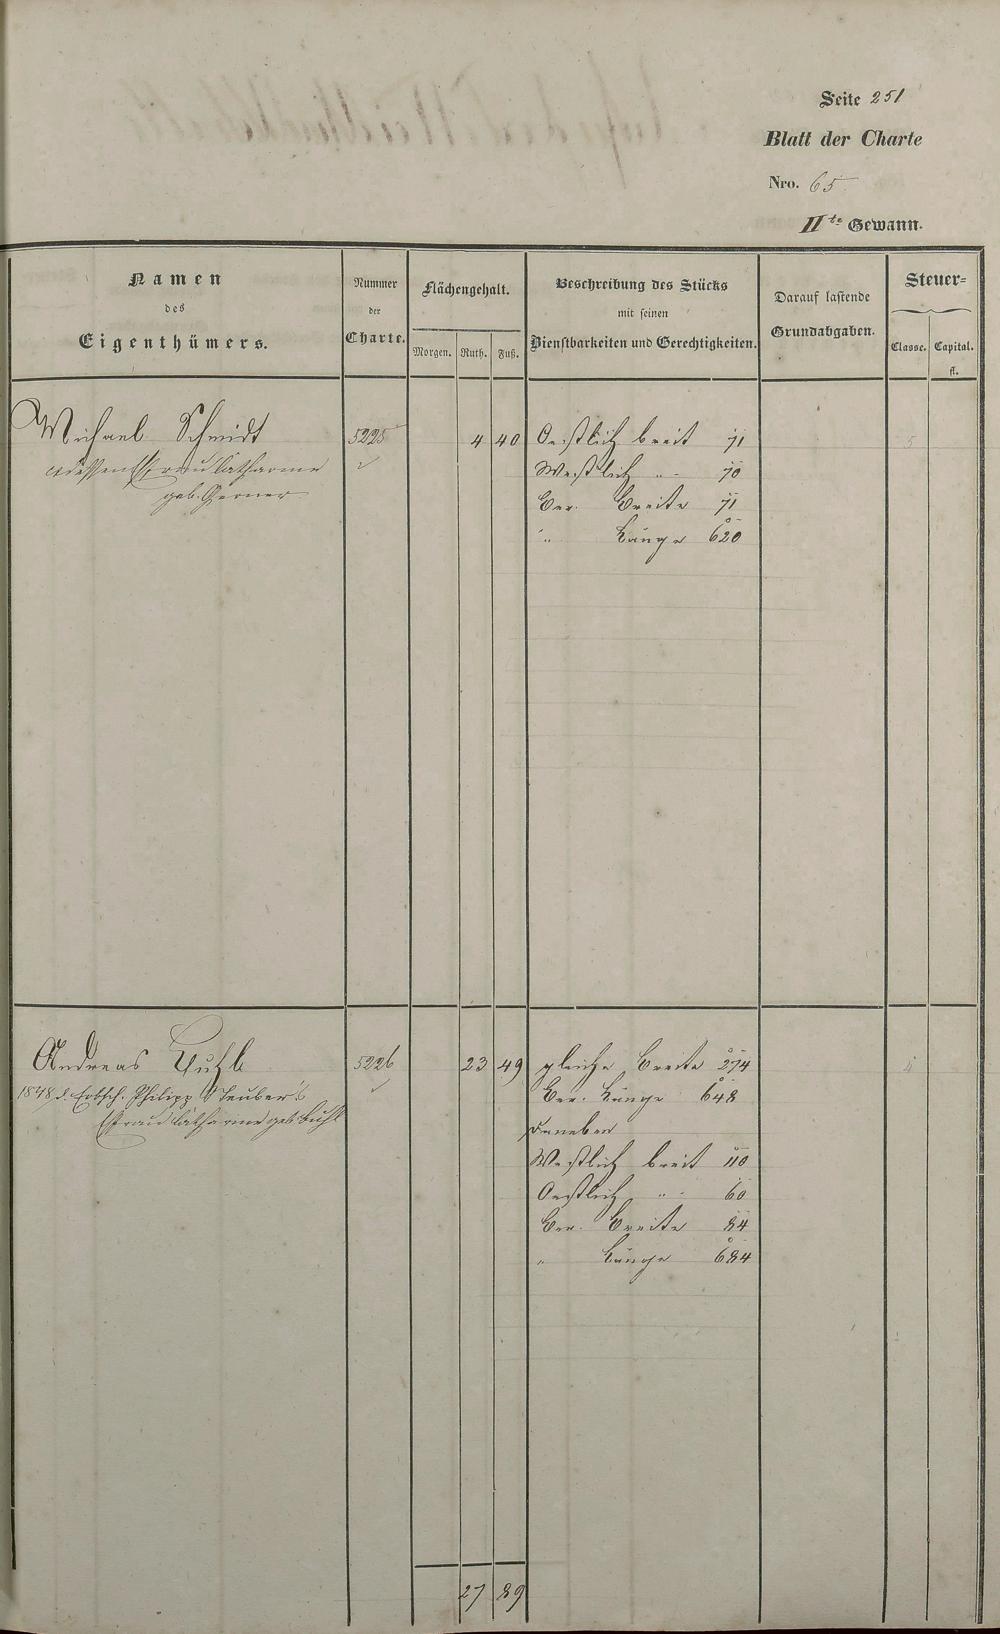 Seite 251
Blatt der Charte
Nro. 65
IIte Gewann.
Namen
des
Eigenthümers.
Nummer
der
Charte.
Flächengehalt.
Morgen. Ruth. Fuß.
Beschreibung des Stücks
mit seinen
Dienstbarkeiten und Gerechtigkeiten.
Darauf lastende
Grundabgaben.
Steuer-
Classe. Capital.
fl.
Michael Schmidt 5225 4 40 Oestlich breit 71 5
dessen Ehefrau Catharine Westlich " 70
geb. Ber. Breite 71
" Länge 620
Andreas 5226 23 49 gleiche Breite 274 4
1848 d. Erbsch. Philipp Teuber's Ber. Länge 648
Efrau Catharine geb. Daneben
Westlich breit 110
Oestlich " 60
Ber. Breite 84
" Länge 684
27 89